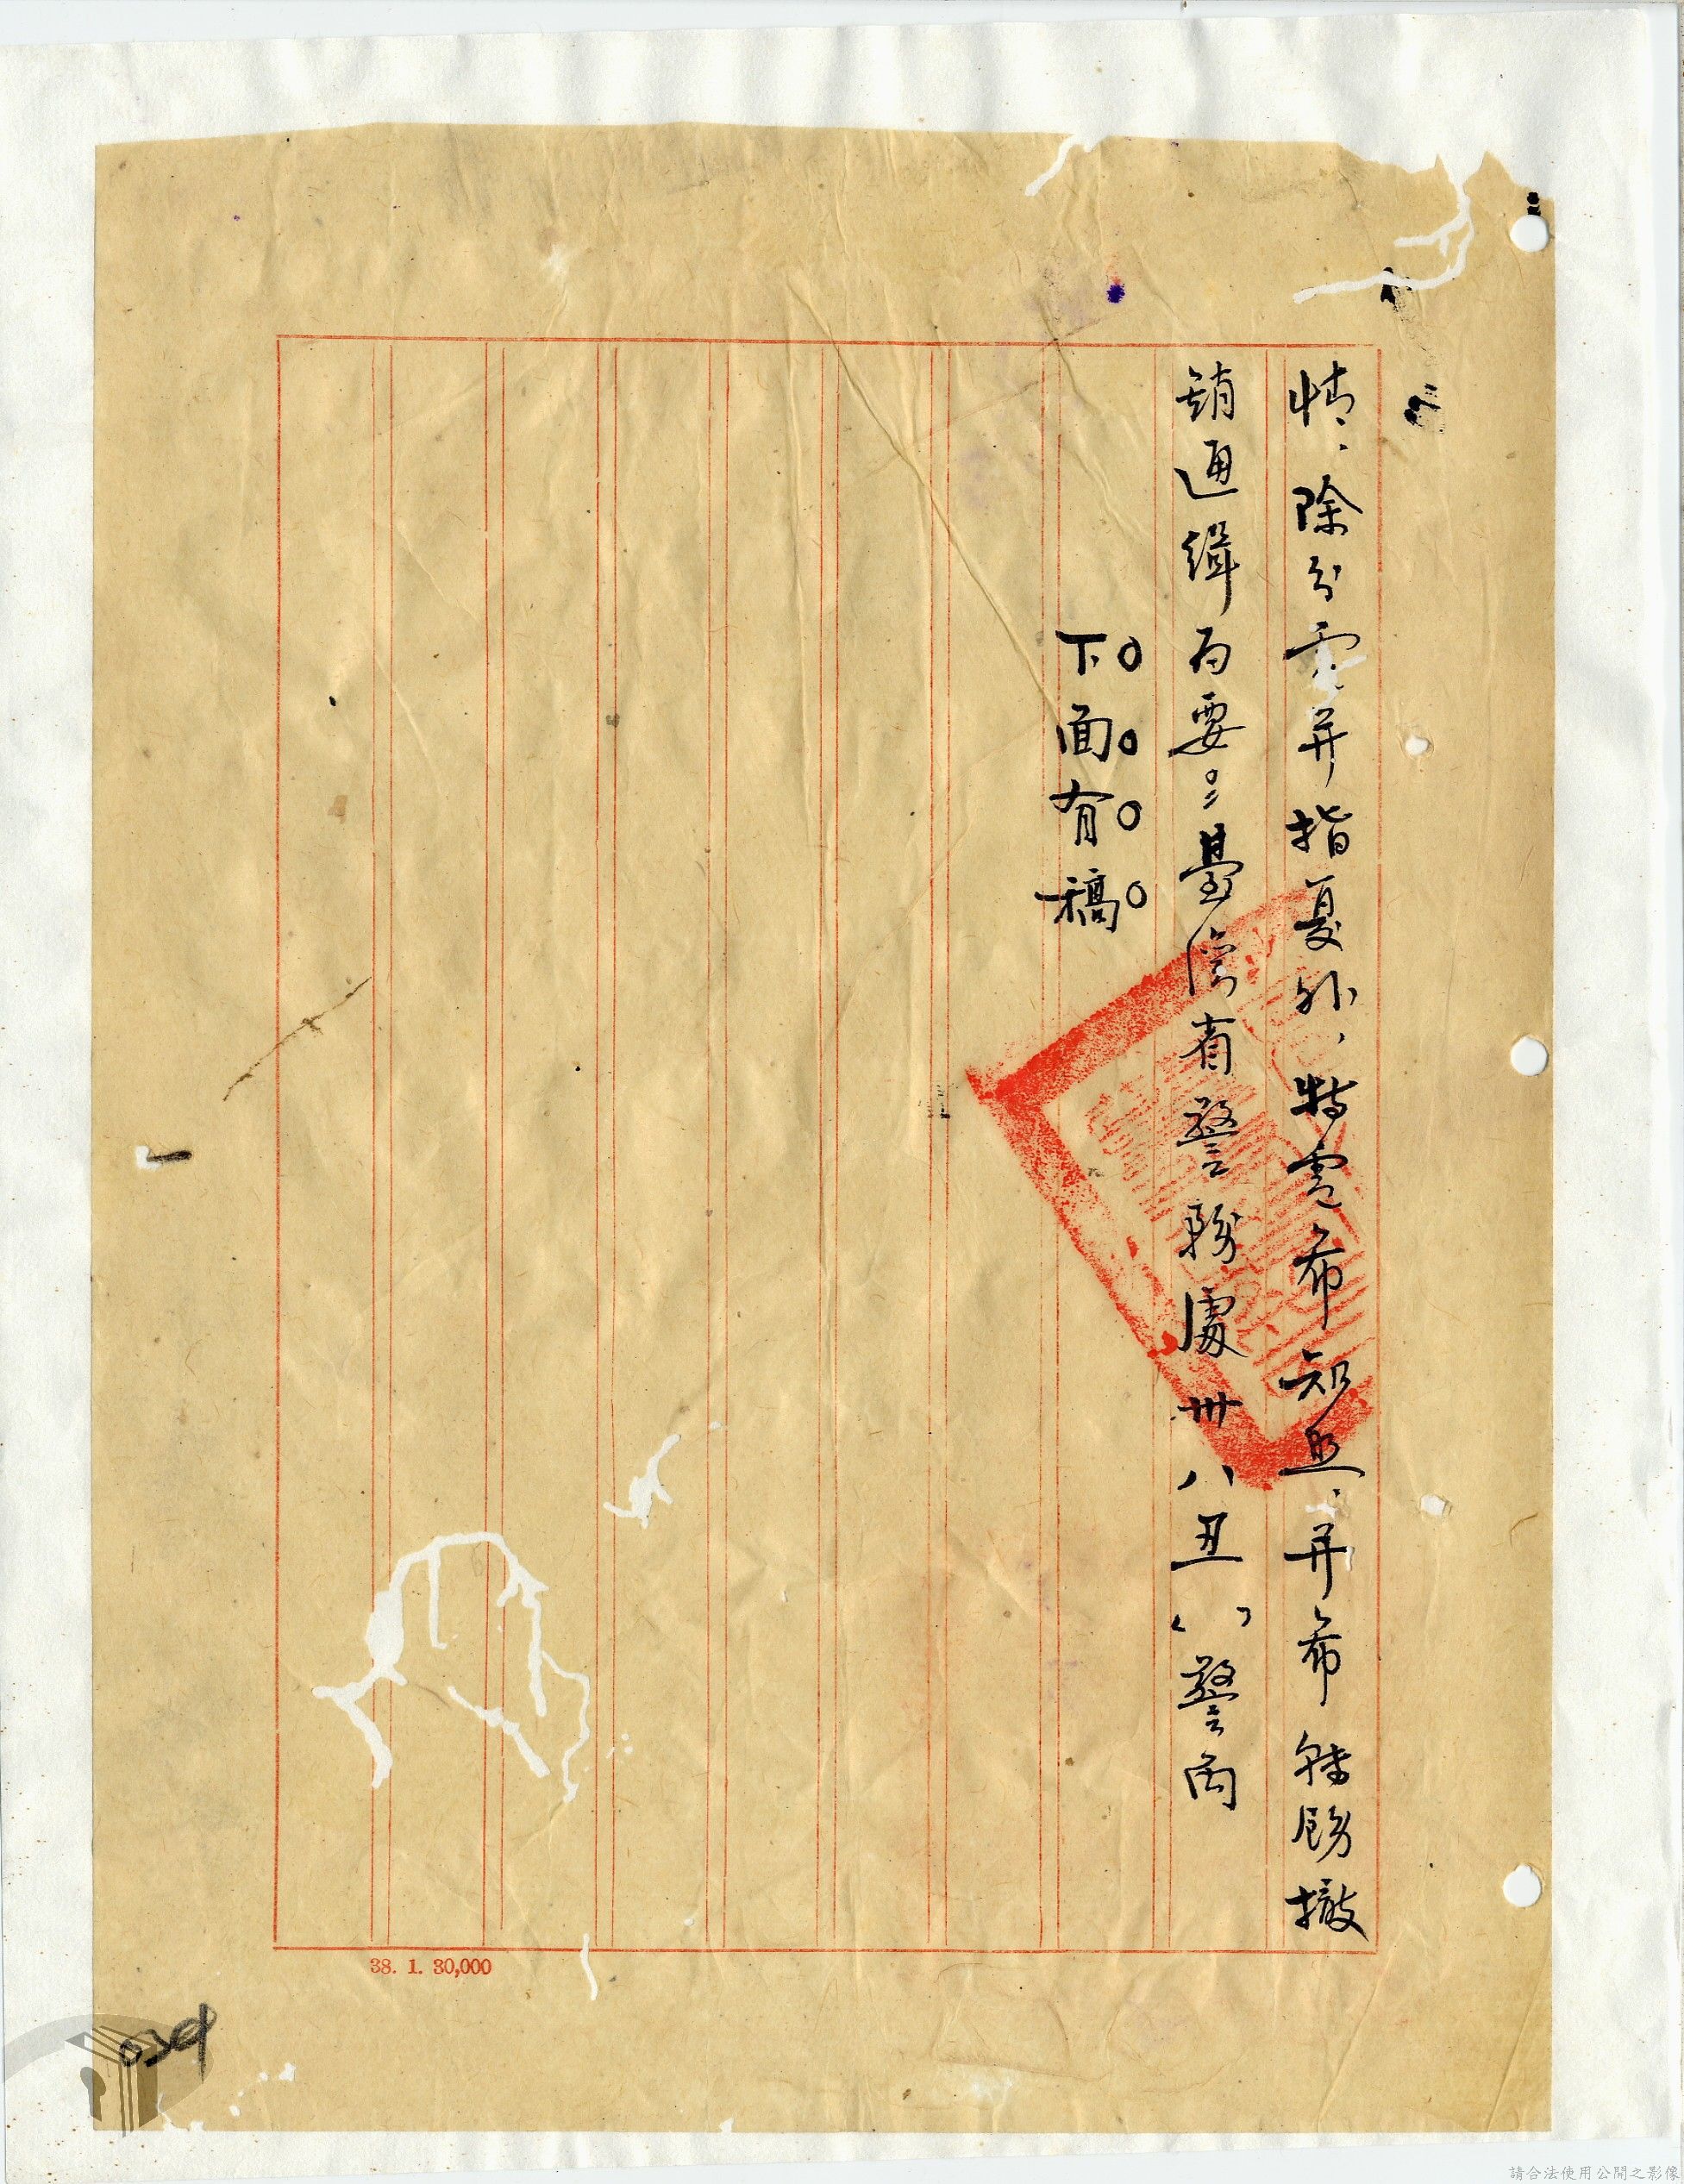 情、除分電并指復外、特電希知照、并希轉飭撤
銷通緝為要〻臺灣省警務處卅八丑( )警丙
下面有稿
38. 1. 30,000
029
請合法使用公開之影像